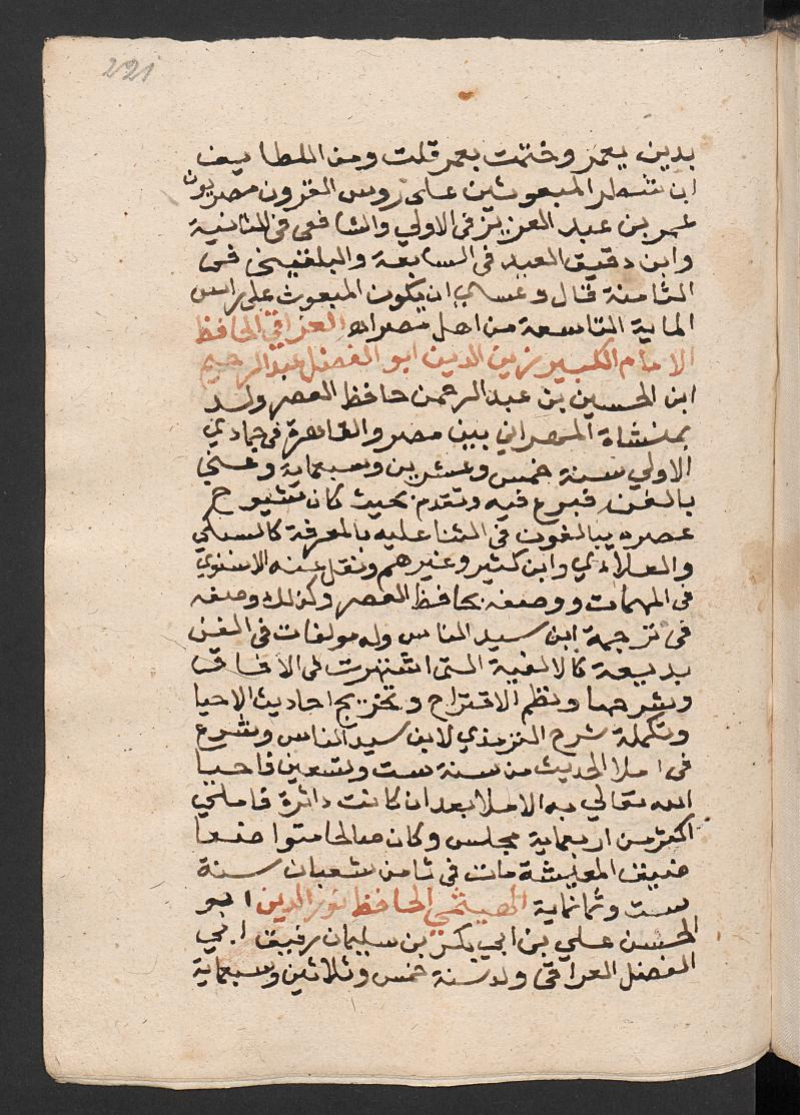 221
بدين بعمر وختمت بعمر قلت ومن اللطايف
ان شطر المبعوثين على روس القرون مصريون
عمر بن عبد العزيز في الاولي والشافعي في الثانية
وابن دقيق العيد في السابعة والبلقيني في
الثامنة قال وعسي ان يكون المبعوث على راس
الماية التاسعة من اهل مصر اه العراقي الحافظ
الامام الكبير زين الدين ابو الفضل عبد الرحيم
ابن الحسين بن عبد الرحمن حافظ العصر ولد
بمنشاة المهراني بين مصر والقاهرة في جمادي
الاولي سنة خمس وعشرين وسبعماية وعني
بالفن فبرع فيه وتقدم بحيث كان شيوخ
عصره يبالغون في الثنا عليه بالمعرفة كالسبكي
والعلاءي وابن كثير وغيرهم ونقل عنه الاسنوي
في المهمات ووصفه بحافظ العصر وكذلك وصفه
في ترجمة ابن سيد الناس وله مولفات في الفن
بديعة كالالفية التي اشتهرت في الافاق
وشرحها ونظم الاقتراح وتخريج احاديث الاحيا
وتكملة شرح الترمذي لابن سيد الناس وشرع
في املا الحديث من سنة ست وتسعين فاحيا
الله تعالي به الاملا بعد ان كانت داثرة فاملي
اكثر من اربعماية مجلس وكان صالحا متواضعا
ضيق المعيشة مات في ثامن شعبان سنة
ست وثمانماية الهيثمي الحافظ نور الدين ابو
الحسن علي بن ابي بكر بن سليمان رفيق ابي
الفضل العراقي ولد سنة خمس وثلاثين وسبعماية